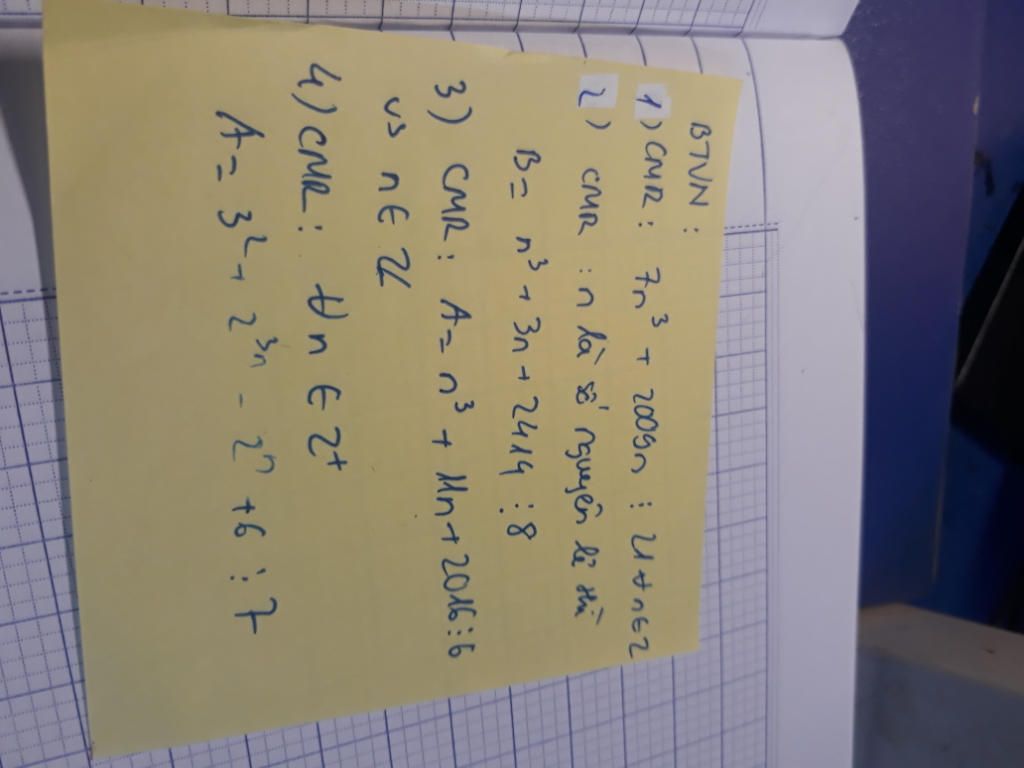 BTVN :
1) CMR : 7n³ + 2009n ⋮ 21 ∀ n ∈ Z
2) CMR : n là số nguyên lẻ thì
B = n³ + 3n + 2414 ⋮ 8
3) CMR : A = n³ + 11n + 2016 ⋮ 6
vs n ∈ Z
4) CMR : ∀n ∈ Z⁺
A = 3² + 2³ⁿ - 2ⁿ + 6 ⋮ 7